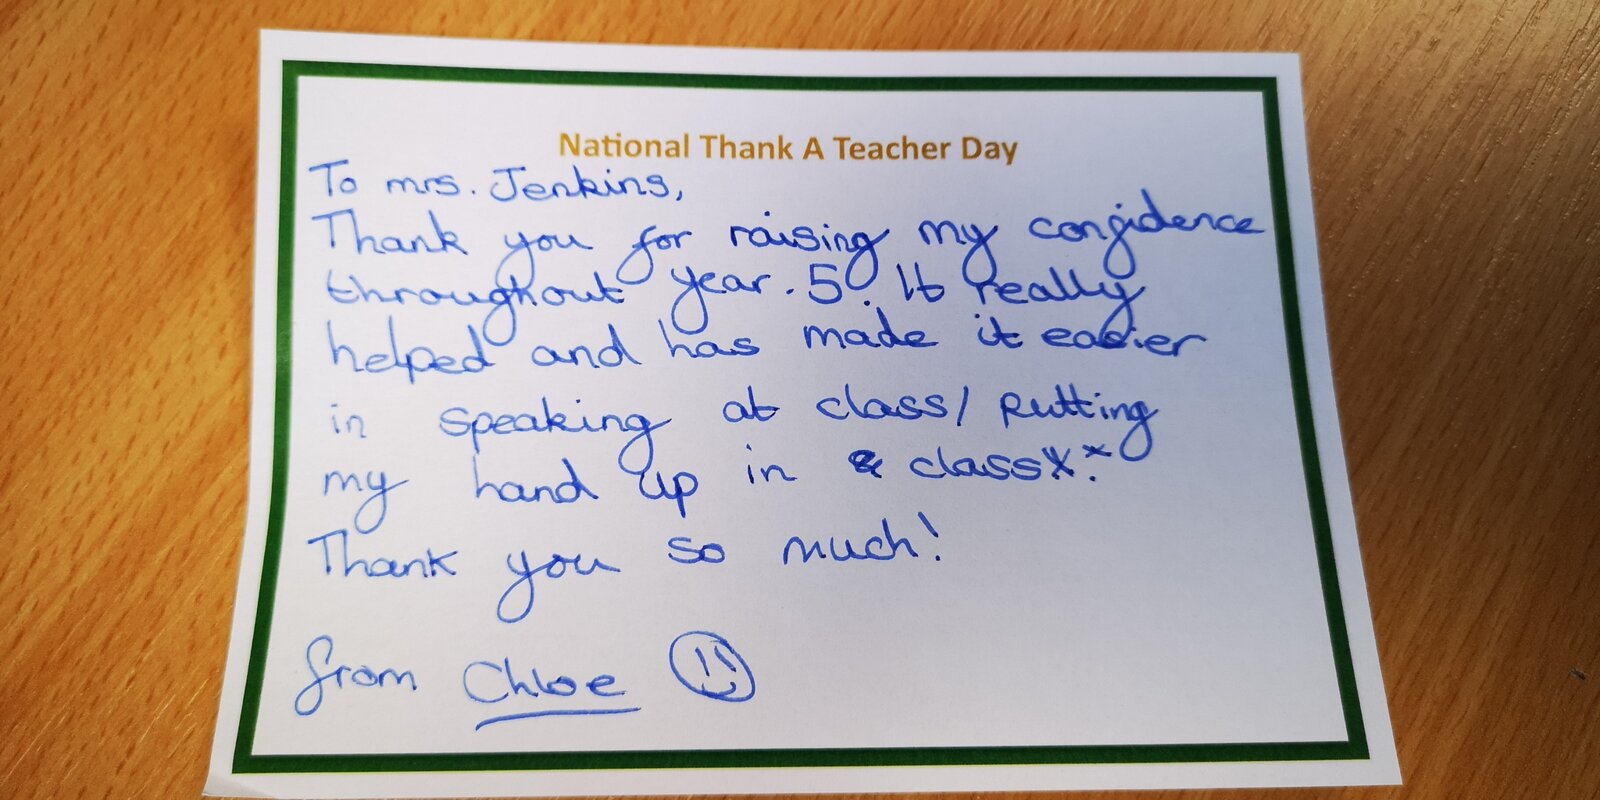 National Thank A Teacher Day
To mrs. Jenkins,
Thank you for raising my confidence
throughout year.5. It really
helped and has made it easier
in speaking at class/ putting
my hand up in class.
Thank you so much!
from Chloe